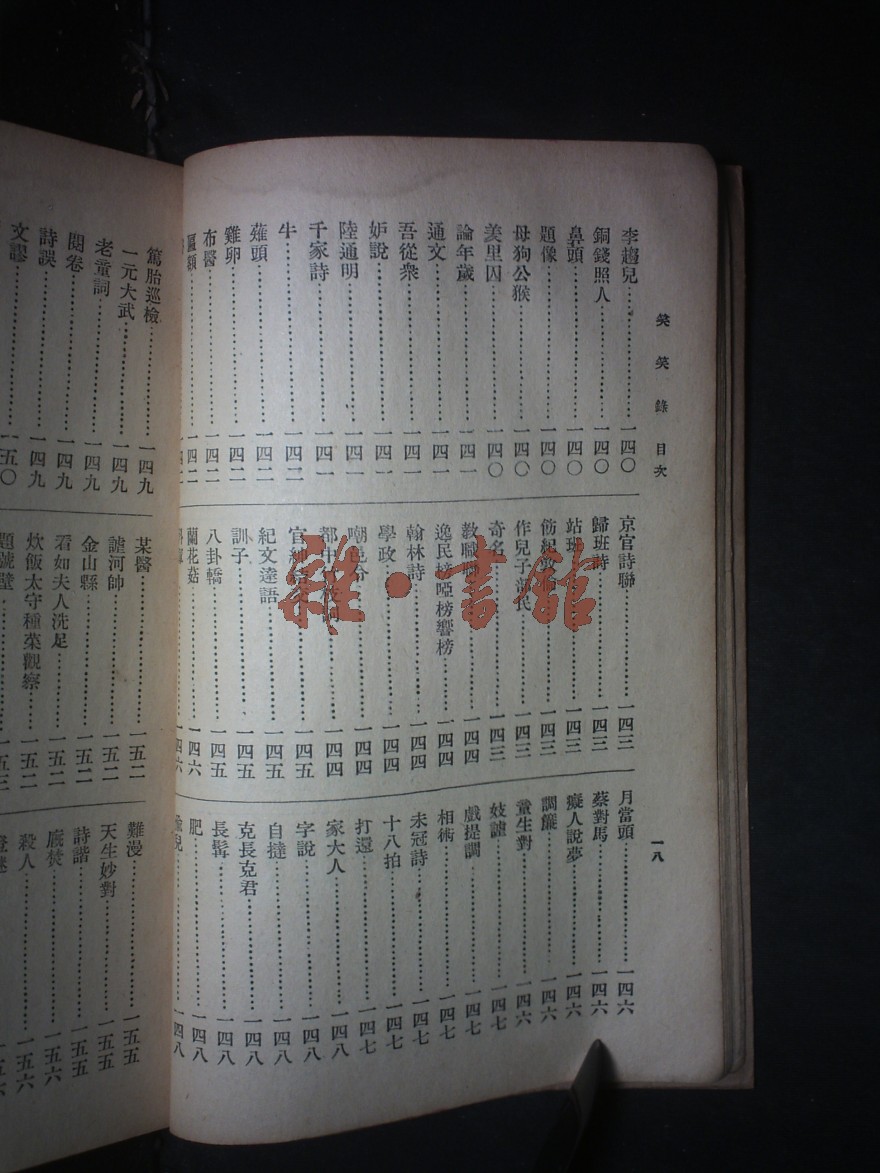 笑笑錄 目次
一八
李趨兒一四〇
銅錢照人一四〇
鼻頭一四〇
題像一四〇
母狗公猴一四〇
羑里囚一四〇
論年歲一四一
通文一四一
吾從衆一四一
妒說一四一
陸通明一四一
千家詩一四一
牛一四二
薙頭一四二
雞卵一四二
布醫一四二
額
京官詩聯一四三
歸班詩一四三
站班一四三
一四三
作兒子部民一四三
奇名一四三
教職一四四
逸民榜啞榜響榜一四四
翰林詩一四四
學政一四四
嘲邑令一四四
都中一四四
官一四五
紀文達語一四五
訓子一四五
八卦橋一四五
蘭花菇一四六
一四六
月當頭一四六
蔡對馬一四六
癡人說夢一四六
調簾一四六
童生對一四六
妓謔一四六
戲提調一四七
相術一四七
未冠詩一四七
十八拍一四七
打還一四七
家大人一四八
字說一四八
自撻一四八
克長克君一四八
長髯一四八
肥一四八
兒一四八
篤胎巡檢一四九
一元大武一四九
老童詞一四九
閱卷一四九
詩誤一四九
文謬一五〇
某醫一五二
謔河帥一五二
金山縣一五二
看如夫人洗足一五二
炊飯太守種菜觀察一五二
題號璧一五三
難漫一五五
天生妙對一五五
詩諧一五五
廄焚一五六
殺人一五六
雜·書館